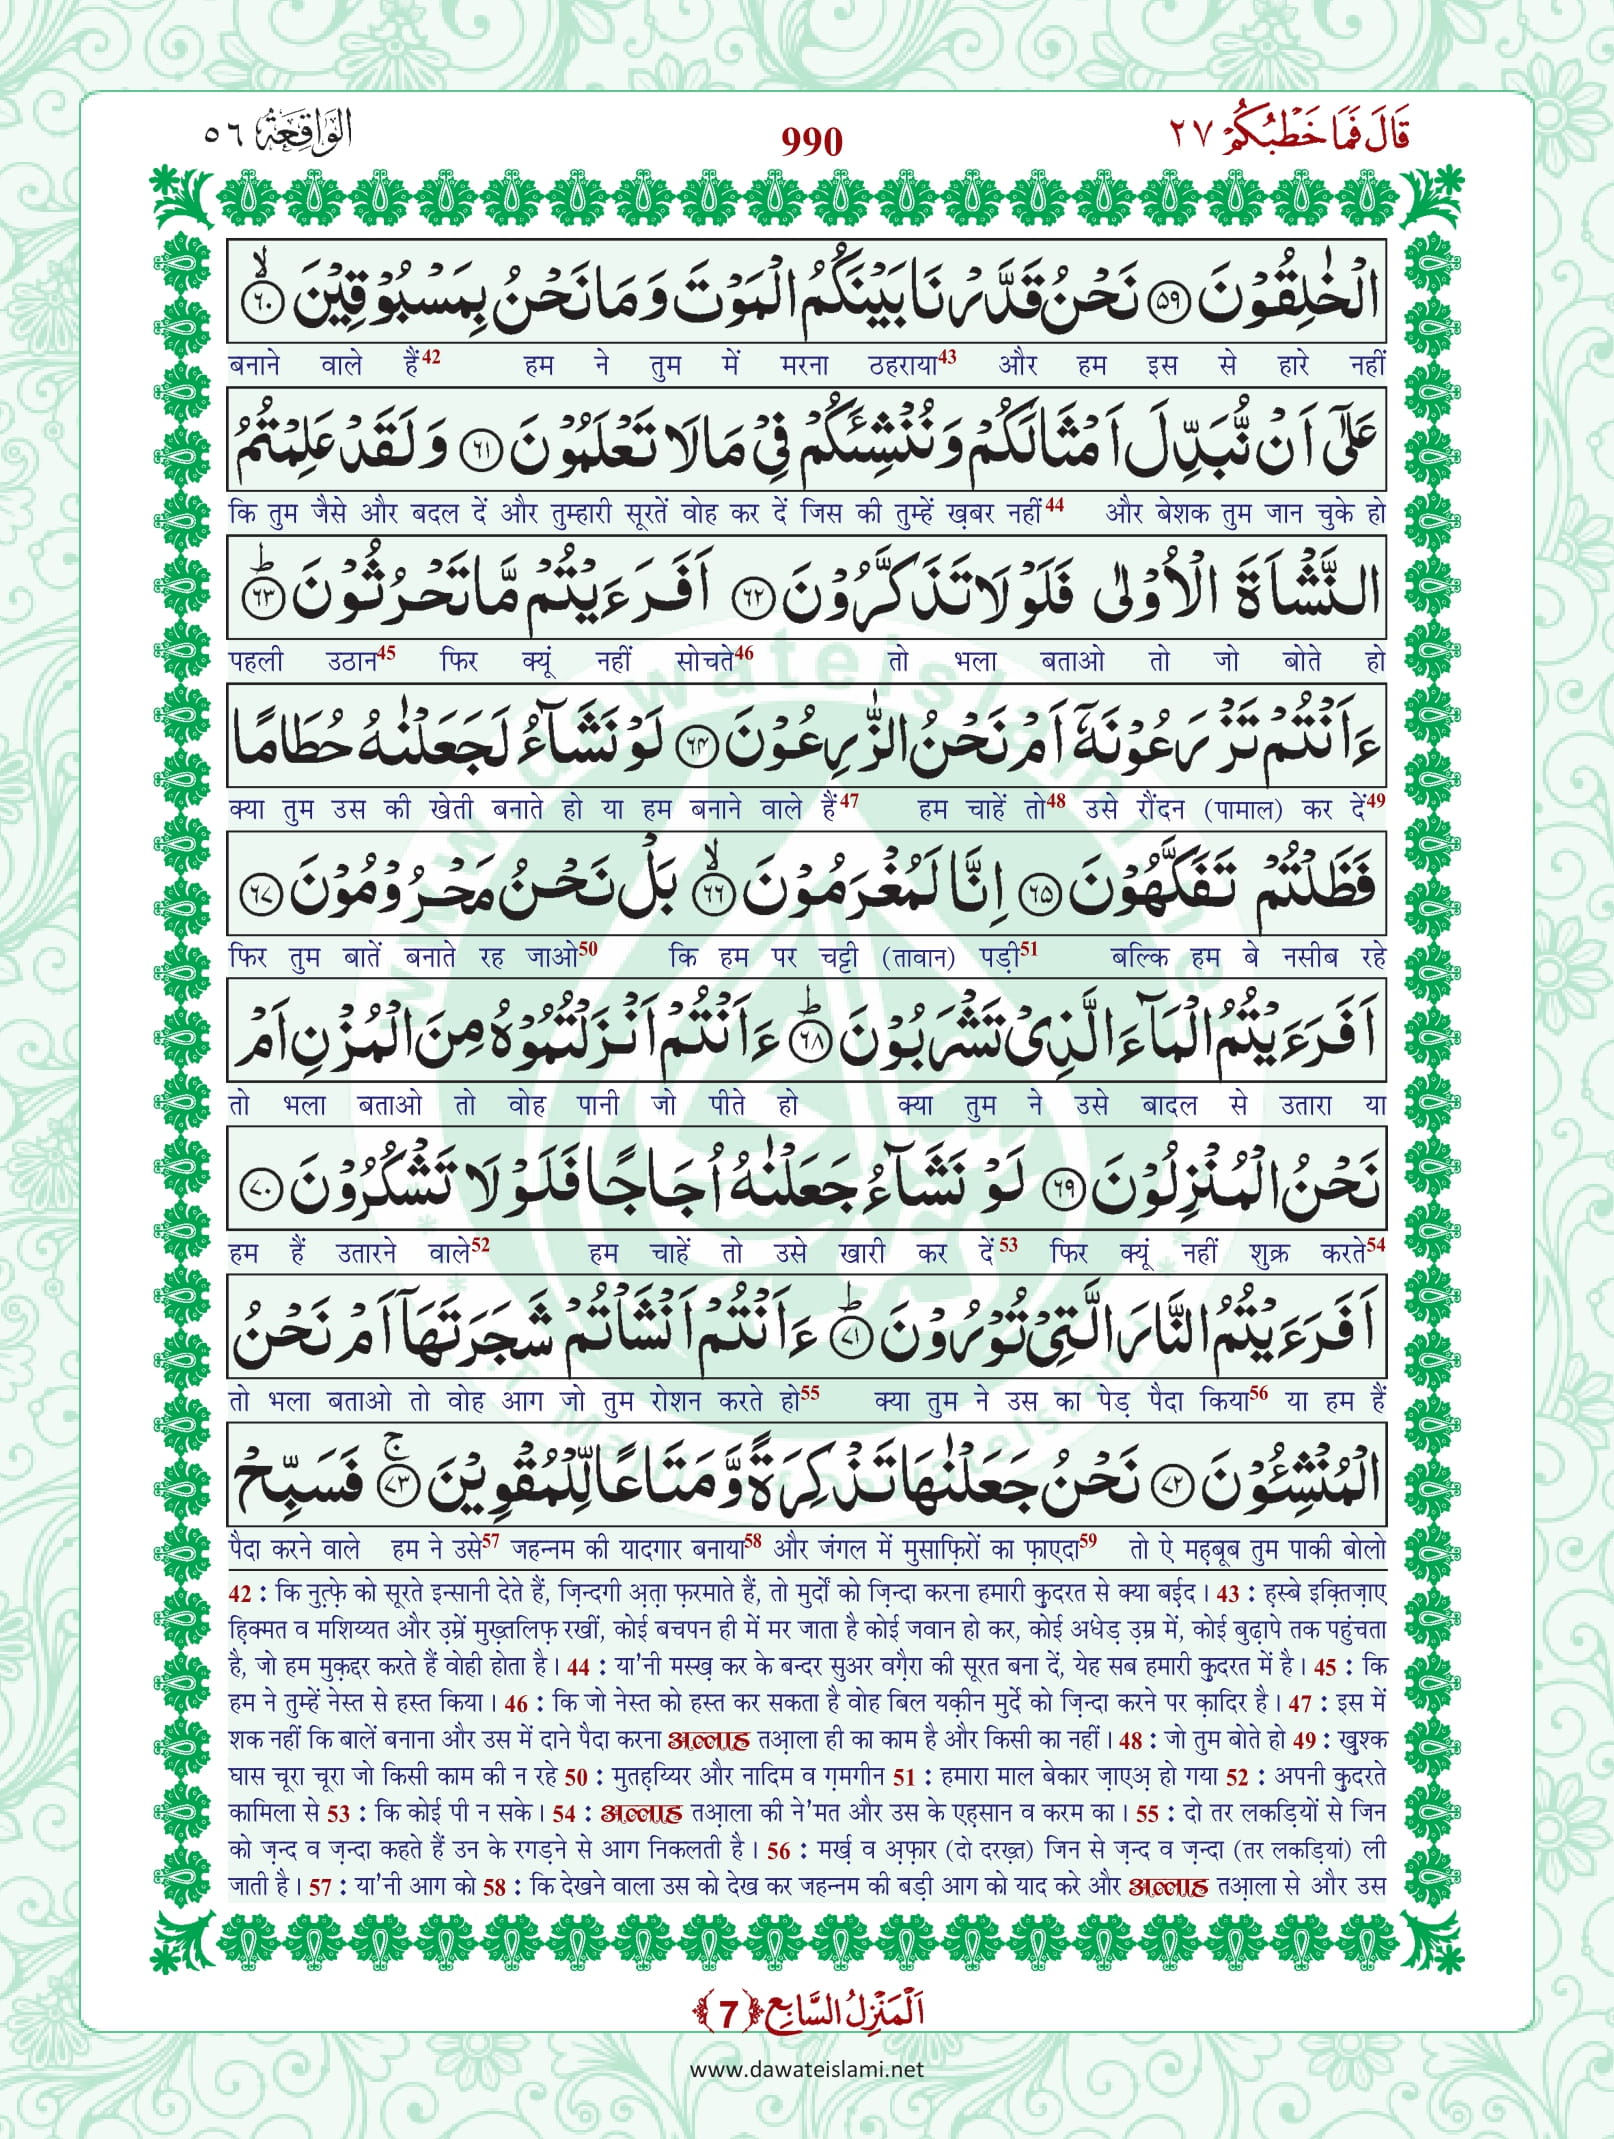 قَالَ فَمَا خَطْبُكُمْ ٢٧
990
الْوَاقِعَةُ ٥٦
الْخٰلِقُوْنَ ﴿٥٩﴾ نَحْنُ قَدَّرْنَا بَيْنَكُمُ الْمَوْتَ وَ مَا نَحْنُ بِمَسْبُوْقِيْنَ ﴿٦٠﴾ۙ
बनाने वाले हैं42 हम ने तुम में मरना ठहराया43 और हम इस से हारे नहीं
عَلٰۤى اَنْ نُّبَدِّلَ اَمْثَالَكُمْ وَ نُنْشِئَكُمْ فِیْ مَا لَا تَعْلَمُوْنَ ﴿٦١﴾ وَ لَقَدْ عَلِمْتُمُ
कि तुम जैसे और बदल दें और तुम्हारी सूरतें वोह कर दें जिस की तुम्हें ख़बर नहीं44 और बेशक तुम जान चुके हो
النَّشْاَةَ الْاُوْلٰى فَلَوْ لَا تَذَكَّرُوْنَ ﴿٦٢﴾ اَفَرَءَیْتُمْ مَّا تَحْرُثُوْنَ ﴿٦٣﴾ؕ
पहली उठान45 फिर क्यूं नहीं सोचते46 तो भला बताओ तो जो बोते हो
ءَاَنْتُمْ تَزْرَعُوْنَهٗۤ اَمْ نَحْنُ الزّٰرِعُوْنَ ﴿٦۴﴾ لَوْ نَشَآءُ لَجَعَلْنٰهُ حُطَامًا
क्या तुम उस की खेती बनाते हो या हम बनाने वाले हैं47 हम चाहें तो48 उसे रौंदन (पामाल) कर दें49
فَظَلْتُمْ تَفَكَّهُوْنَ ﴿٦٥﴾ اِنَّا لَمُغْرَمُوْنَ ﴿٦٦﴾ۙ بَلْ نَحْنُ مَحْرُوْمُوْنَ ﴿٦٧﴾
फिर तुम बातें बनाते रह जाओ50 कि हम पर चट्टी (तावान) पड़ी51 बल्कि हम बे नसीब रहे
اَفَرَءَیْتُمُ الْمَآءَ الَّذِیْ تَشْرَبُوْنَ ﴿٦٨﴾ؕ ءَاَنْتُمْ اَنْزَلْتُمُوْهُ مِنَ الْمُزْنِ اَمْ
तो भला बताओ तो वोह पानी जो पीते हो क्या तुम ने उसे बादल से उतारा या
نَحْنُ الْمُنْزِلُوْنَ ﴿٦٩﴾ لَوْ نَشَآءُ جَعَلْنٰهُ اُجَاجًا فَلَوْ لَا تَشْكُرُوْنَ ﴿٧٠﴾
हम हैं उतारने वाले52 हम चाहें तो उसे खारी कर दें53 फिर क्यूं नहीं शुक्र करते54
اَفَرَءَیْتُمُ النَّارَ الَّتِیْ تُوْرُوْنَ ﴿٧١﴾ؕ ءَاَنْتُمْ اَنْشَاْتُمْ شَجَرَتَهَاۤ اَمْ نَحْنُ
तो भला बताओ तो वोह आग जो तुम रोशन करते हो55 क्या तुम ने उस का पेड़ पैदा किया56 या हम हैं
الْمُنْشِـُٔوْنَ ﴿٧٢﴾ نَحْنُ جَعَلْنٰهَا تَذْكِرَةً وَّ مَتَاعًا لِّلْمُقْوِیْنَ ﴿٧٣﴾ۚ فَسَبِّحْ
पैदा करने वाले हम ने उसे57 जहन्नम की यादगार बनाया58 और जंगल में मुसाफ़िरों का फ़ाएदा59 तो ऐ मह़बूब तुम पाकी बोलो
42 : कि नुत़्फ़े को सूरते इन्सानी देते हैं, ज़िन्दगी अ़त़ा फ़रमाते हैं, तो मुर्दों को ज़िन्दा करना हमारी क़ुदरत से क्या बईद। 43 : ह़स्बे इक़्तिज़ाए
ह़िक्मत व मशिय्यत और उ़म्रें मुख़्तलिफ़ रखीं, कोई बचपन ही में मर जाता है कोई जवान हो कर, कोई अधेड़ उ़म्र में, कोई बुढ़ापे तक पहुंचता
है, जो हम मुक़द्दर करते हैं वोही होता है। 44 : या'नी मस्ख़ कर के बन्दर सुअर वग़ैरा की सूरत बना दें, येह सब हमारी क़ुदरत में है। 45 : कि
हम ने तुम्हें नेस्त से हस्त किया। 46 : कि जो नेस्त को हस्त कर सकता है वोह बिल यक़ीन मुर्दे को ज़िन्दा करने पर क़ादिर है। 47 : इस में
शक नहीं कि बालें बनाना और उस में दाने पैदा करना अल्लाह तआ़ला ही का काम है और किसी का नहीं। 48 : जो तुम बोते हो 49 : ख़ुश्क
घास चूरा चूरा जो किसी काम की न रहे 50 : मुतह़य्यिर और नादिम व ग़मगीन 51 : हमारा माल बेकार ज़ाएअ़ हो गया 52 : अपनी क़ुदरते
कामिला से 53 : कि कोई पी न सके। 54 : अल्लाह तआ़ला की ने'मत और उस के एह़सान व करम का। 55 : दो तर लकड़ियों से जिन
को ज़न्द व ज़न्दा कहते हैं उन के रगड़ने से आग निकलती है। 56 : मर्ख़ व अ़फ़ार (दो दरख़्त) जिन से ज़न्द व ज़न्दा (तर लकड़ियां) ली
जाती है। 57 : या'नी आग को 58 : कि देखने वाला उस को देख कर जहन्नम की बड़ी आग को याद करे और अल्लाह तआ़ला से और उस
اَلْمَنْزِلُ السَّابِع ﴿7﴾
www.dawateislami.net